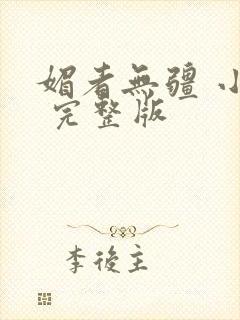 媚者無疆 小
完整版
李後主